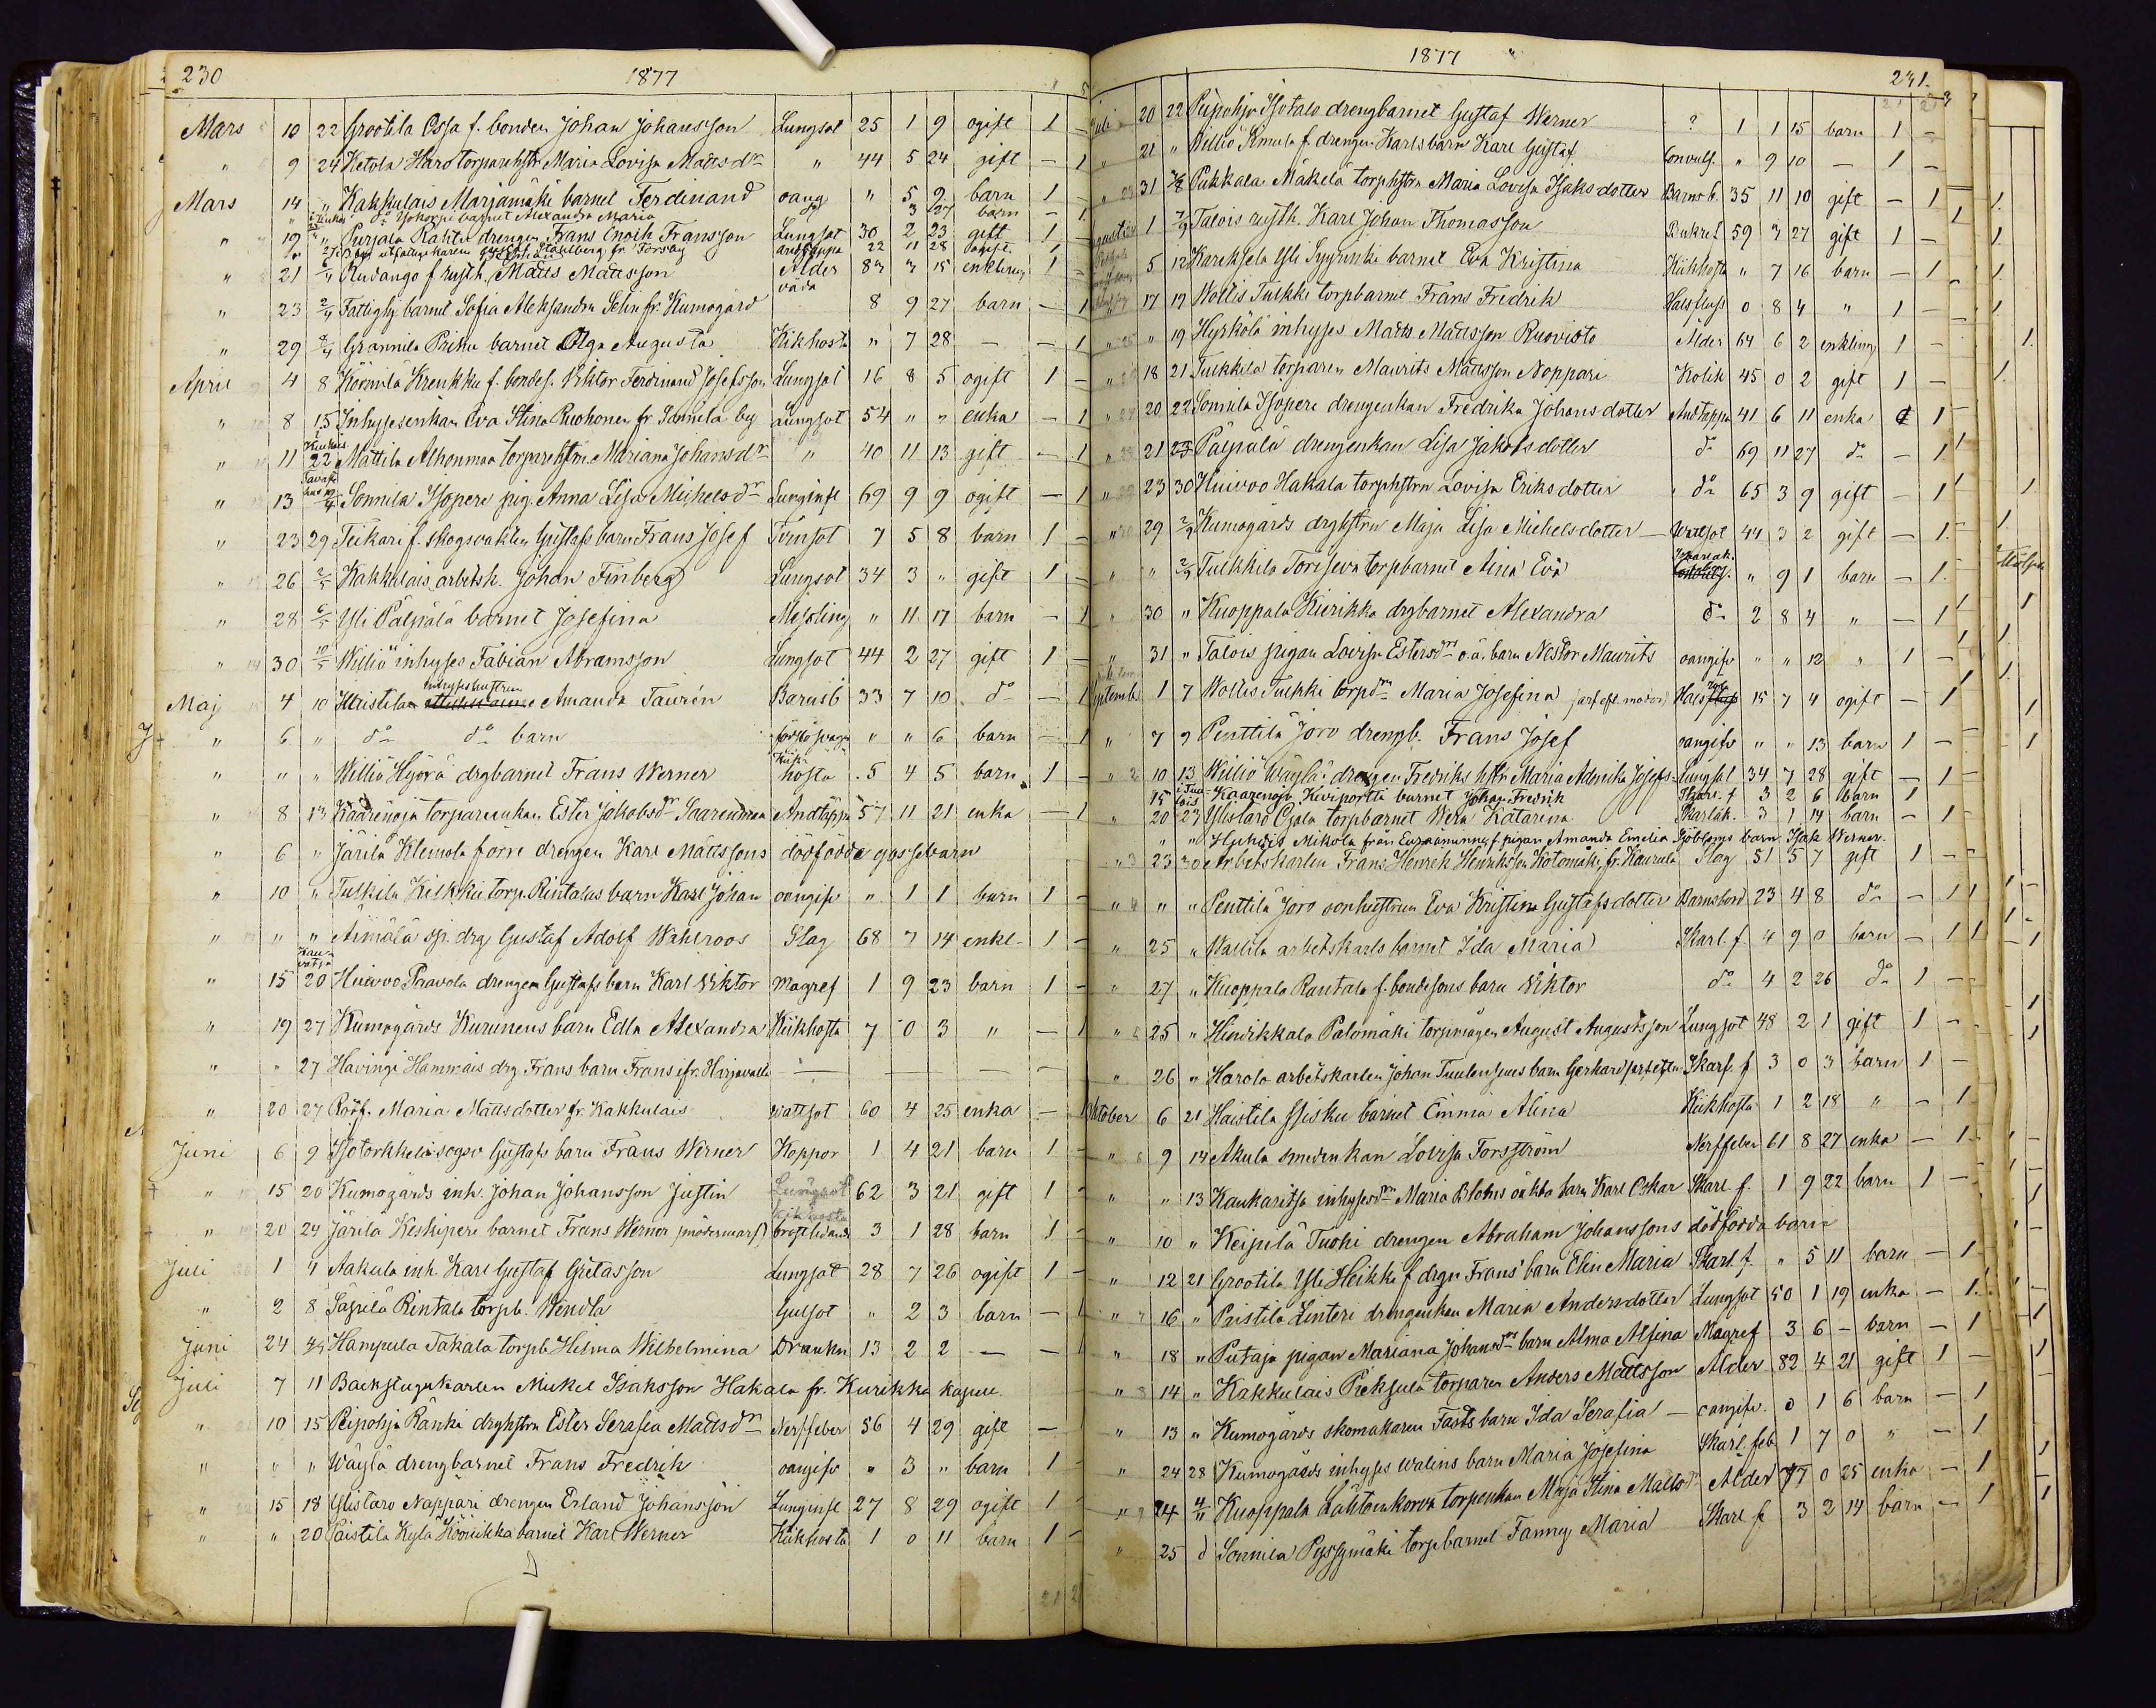 230
1877
Mars 10 22 Grootila Ossa f. bonden Johan Johansson Lungsot 25 1 9 ogift 1 –
" 9 24 Ketola Haro torparehstr Maria Lovisa Mattsdr " 44 5 24 gift – 1
Mars 14 " Kakkulais Marjamäki barnet Ferdinand oang " 5 9 barn 1
" do barnet Alexandra Maria do 3 27 barn – 1
" 19 " Purjala Rahtu drengen Frans Enoch Fransson Lungsot 30 2 23 gift 1
Ståhlberg fr. andtäppa 22 11 28 ogift
" 21 6/4 f. rusth. Matts Mattsson Ålder 83 3 15 enkling 1 –
" 23 2/4 Fattighj. barnet Sofia Aleksandra Selin fr. Kumogård våda 8 9 27 barn – 1
" 29 8/4 Grannila Prihu barnet Olga Augusta Kikhosta " 7 28 – – 1
April 4 8 Köömilä Krenkku f. bondes. Viktor Ferdinand Josefsson Lungsot 16 8 5 ogift 1 –
" 8 15 Inhysesenkan Eva Stina Ruohonen fr. Sonnila by Lungsot 54 " " enka – 1
" 11 22 Mattila Alhonmaa torparehstrn Mariana Johansdr " 40 11 13 gift – 1
" 13 Sonnila Isopere pig. Anna Lisa Michelsdr Lunginfl 69 9 9 ogift – 1
" 23 29 Tiikari f. skogsvakten Gustafs barn Frans Josef Tvinsot 7 5 8 barn 1 –
" 26 2/5 Kakkulais arbetsk. Johan Finberg Lungsot 34 3 " gift 1
" 28 6/5 Yli Pälpälä barnet Josefina Messling " 11 17 barn – 1
" 30 10/5 Williö inhyses Fabian Abramsson Lungsot 44 2 27 gift 1 –
Maj 4 10 inhyseshustrun Amanda Taurén Barnsb 33 7 10 do – 1
" 6 " do do barn " " 6 barn – 1
" " " Williö Hyörä drgbarnet Frans Werner Kikhosta 5 4 5 barn 1 –
" 8 13 Kaarenoja torpareenkan Ester Jakobsdr Saarenmaa Andtäppa 57 11 21 enka – 1
" 6 " Järilä Klemola förre drengen Karl Mattssons dödfödde gossebarn
" 10 " Tulkila Kilkku torp. Rintalas barn Karl Johan oangifv " 1 1 barn 1 –
" " " Äimälä sp. drg Gustaf Adolf Wahlroos Slag 68 7 14 enkl. 1 –
" 15 20 Huivoo Paavola drengen Gustafs barn Karl Viktor Magref 1 9 23 barn 1 –
" 19 27 Kumogårds Kurunens barn Edla Alexandra Kikhosta 7 0 3 " – 1
" " 27 Havingi Hammais drg Frans barn Frans ifr. Harjavalla –
" 20 27 Rotf. Maria Mattsdotter fr. Kakkulais Wattsot 60 4 25 enka – 1
Juni 6 9 Isotorkkela sogsv Gustafs barn Frans Werner Koppor 1 4 21 barn 1 –
" 15 20 Kumogårds inh. Johan Johansson Justin Lungsot 62 3 21 gift 1 –
" 20 24 Järilä Keskipere barnet Frans Werner bröstlidande Kikhosta 3 1 28 barn 1 –
Juli 1 " Aakula inh. Karl Gustaf Gretasson Lungsot 28 7 26 ogift 1 –
" 2 8 Säpilä Rintala torpb. Wendla Gulsot " 2 3 barn – 1
Juni 24 4/7 Hampula Takala torpb. Hilma Wilhelmina Drunkn 13 2 2 – – 1
Juli 7 11 Backstugukarlen Mickel Isaksson Hakala fr. Kurikka kapell.
" 10 15 Peipohja Ränki drghstrn Ester Serafia Mattsdr Nerffeber 56 4 29 gift – 1
" " " Wäylä drengbarnet Frans Fredrik oangifv " 3 " barn 1
" 15 18 Ylistaro Nappari drengen Erland Johansson Lunginfl 27 8 29 ogift 1 –
" " 20 Paistila Kylä Köönikkä barnet Karl Werner Kikhosta 1 0 11 barn 1 –
1877
231.
Juli 20 22 Peipohja Isotalo drengbarnet Gustaf Werner ? 1 1 15 barn 1 –
" 21 " Williö Kmula f. drengen Karls barn Karl Gustaf Convuls. " 9 10 – 1 –
" 31 Pukkala Mäkelä torphstrn Maria Lovisa Isaksdotter Barnsb. 35 11 10 gift – 1
Augusti 1 7/9 Talois rusth. Karl Johan Thomasson Bukref 59 3 27 gift 1 –
5 12 Kareksela Yli barnet Eva Kristina Kikhosta " 7 16 barn – 1
17 19 Wottis Tulkki torpbarnet Frans Fredrik Halsfluss 0 8 4 " 1 –
" " 19 Hyrkölä inhyses Matts Mattsson Ruovisto Ålder 64 6 2 enkling 1 –
" 18 21 Tulkkila torparen Maurits Mattsson Noppari Kolik 45 0 2 gift 1 –
" 20 22 Sonnila Isopere drengenkan Fredrika Johansdotter Andtäppa 41 6 11 enka 1
" 21 23 Pälpälä drengenkan Lisa Jakobsdotter do 69 11 27 do – 1
" 23 30 Huivoo Hakala torphstrn Lovisa Eriksdotter do 65 3 9 gift – 1
" 29 2/9 Kumogårds drghstrn Maja Lisa Michelsdotter – Wattsot 44 3 2 gift – 1.
" " 2/9 Tulkkila Toriseva torpbarnet Aina Eva Skarlak. " 9 1 barn – 1.
" 30 " Kuoppala Kierikka drgbarnet Alexandra do 2 8 4 " – 1
" 31 " Talois pigan Lovisa Estersdrs o.ä. barn Nestor Maurits oangifv " " 12 " 1 –
Septemb 1 7 Wottis Tulkki torpdr Maria Josefina arf eft. modern Halsröta 15 7 4 ogift – 1
" 7 9 Penttilä Joro drengb. Frans Josef oangifv " " 13 barn 1 –
" 10 13 Williö Wäylä drengen Fredriks hstr Maria Adrika Josefs– Lungsot 34 7 28 gift – 1
15 Kaarenoja Kiviportti barnet Johan Fredrik Skarl. f 3 2 6 barn 1
" 20 23 Ylistaro Ojala torpbarnet Wera Katarina Skarlak. 3 1 19 barn – 1
" " Huhdis Mikola från Euraåminne f. pigan Amanda Emelia Sjöbloms barn Isak Werner.
" 23 30 Arbetskarlen Frans Henrik Henriksson Kotomäki fr. Kaurula Slag 51 5 7 gift 1 –
" " " Penttilä Joro sonhustrun Eva Kristina Gustafsdotter Barnsbörd 23 4 8 do – 1
" 25 " Wallila arbetskarls barnet Ida Maria Skarl. f 4 9 0 barn – 1
" 27 " Kuoppala Rantala f. bondesons barn Viktor do 4 2 26 do 1 –
" 25 " Hinrikkala Palomäki torpmågen August Augustsson Lungsot 48 2 1 gift 1 –
" 26 " Harola arbetskarlen Johan Tuulensuus barn Gerhard Skarl. f 3 0 3 barn 1 –
Oktober 6 21 Haistila Iisku barnet Emma Alina Kikhosta 1 2 18 " – 1
" 9 14 Akula smedenkan Lovisa Forsström Nerffeber 61 8 27 enka – 1
" " 13 Kaukaritsa inhysesdr Maria Bloms oäkta barn Karl Oskar Skarl. f. 1 9 22 barn 1 –
" 10 " Keipilä Tuohi drengen Abraham Johanssons dödfödda barn
" 12 21 Grootila Yli Heikki f. drgn Frans' barn Elin Maria Skarl. f. " 5 11 barn – 1
" 16 " Paistila Linteri drengenkan Maria Andersdotter Lungsot 50 1 19 enka – 1
" 18 " Putaja pigan Mariana Johansdrs barn Alma Alfina Magref 3 6 – barn – 1
" 14 " Kakkulais Pieksula torparen Anders Mattsson Ålder 82 4 21 gift 1 –
" 13 " Kumogårds skomakaren Fasts barn Ida Serafia – oangifv. 0 1 6 barn – 1
" 24 28 Kumogårds inhyses Walins barn Maria Josefina Skarl. feb 1 7 0 " – 1
" 24 4/11 Kuoppala Lähteenkorva torpenkan Maja Stina Mattsdr Ålder 77 0 25 enka – 1
" 25 d Sonnila Pyssymäki torpbarnet Fanny Maria Skarl. f 3 2 14 barn – 1